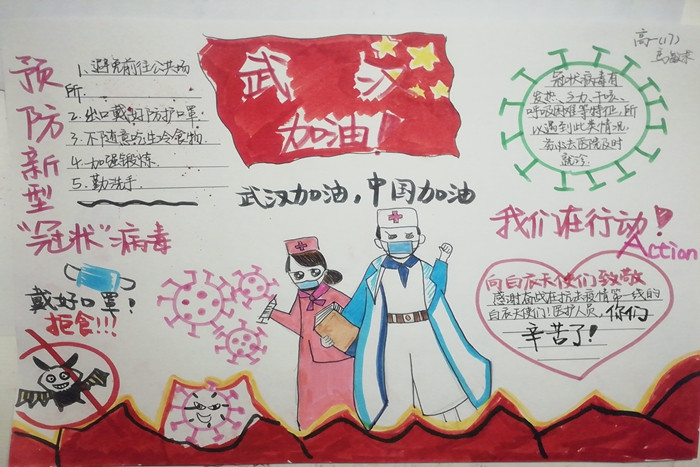 预防新型
"冠状"病毒
1、避免前往公共场
所.
2.出口戴好防护口罩.
3.不随意吃生冷食物.
4.加强锻炼.
5.勤洗手.
武汉
加油!
武汉加油,中国加油
高一(17)
冠状病毒有
发热、乏力、干咳、
呼吸困难等特征,所
以遇到此类情况,
去医院及时
就诊.
我们在行动!
Action
向白衣天使们致敬
感谢奋战在抗击疫情第一线的
白衣天使们!医护人员,你们
辛苦了!
戴好口罩!
拒食!!!